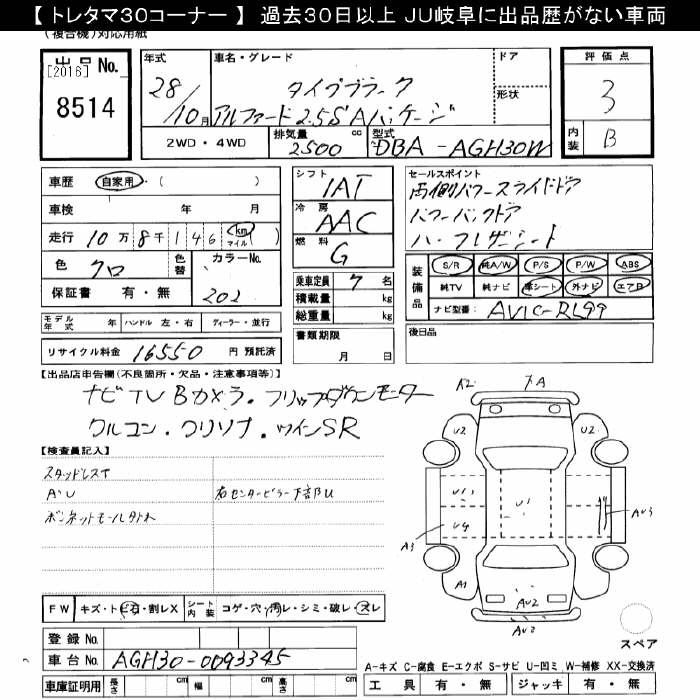 【 トレタマ30コーナー 】 過去30日以上 JU岐阜に出品歴がない車両
(複合機)対応用紙
出品 No.
[2016]
8514
年式
28/10月
車名・グレード
タイプブラック
アルファード 2.5S Aパッケージ
ドア
形状
評価点
3
内装
B
2WD・4WD
排気量
2500 cc
型式
DBA-AGH30W
車歴 自家用・( )
車検 年 月
走行 10万 8千 1 4 6 km マイル ( )
色 クロ
色替
カラーNo.
202
保証書 有・無
シフト
IAT
冷房
AAC
燃料
G
乗車定員 7 名
積載量 kg
総重量 kg
書類期限
月 日
セールスポイント
両側パワースライドドア
パワーバックドア
ハーフレザーシート
装備品
S/R 純A/W P/S P/W ABS
純TV 純ナビ 革シート 外ナビ エアB
ナビ型番: AVIC-RL99
後日品
モデル年式 年 ハンドル 左・右 ディーラー・並行
リサイクル料金 16550 円 預託済
【出品店申告欄(不良箇所・欠品・注意事項等)】
ナビTV Bカメラ。フリップダウンモニター
クルコン。クリソナ。ツインSR
【検査員記入】
スタッドレスT
AU
右センターピラー下部U
ボンネットモール
FW キズ・トビ石・割レX シート内装 コゲ・穴・汚レ・シミ・破レ・スレ
登録 No.
車台 No. AGH30-0093345
車庫証明用 長さ cm 幅 cm 高さ cm
A2
A
U2
U2
U1
U1
U4
A3
AU3
A1
A2
AU2
AU2
スペア
A-キズ C-腐食 E-エクボ S-サビ U-凹ミ W-補修 XX-交換済
工具 有・無 ジャッキ 有・無